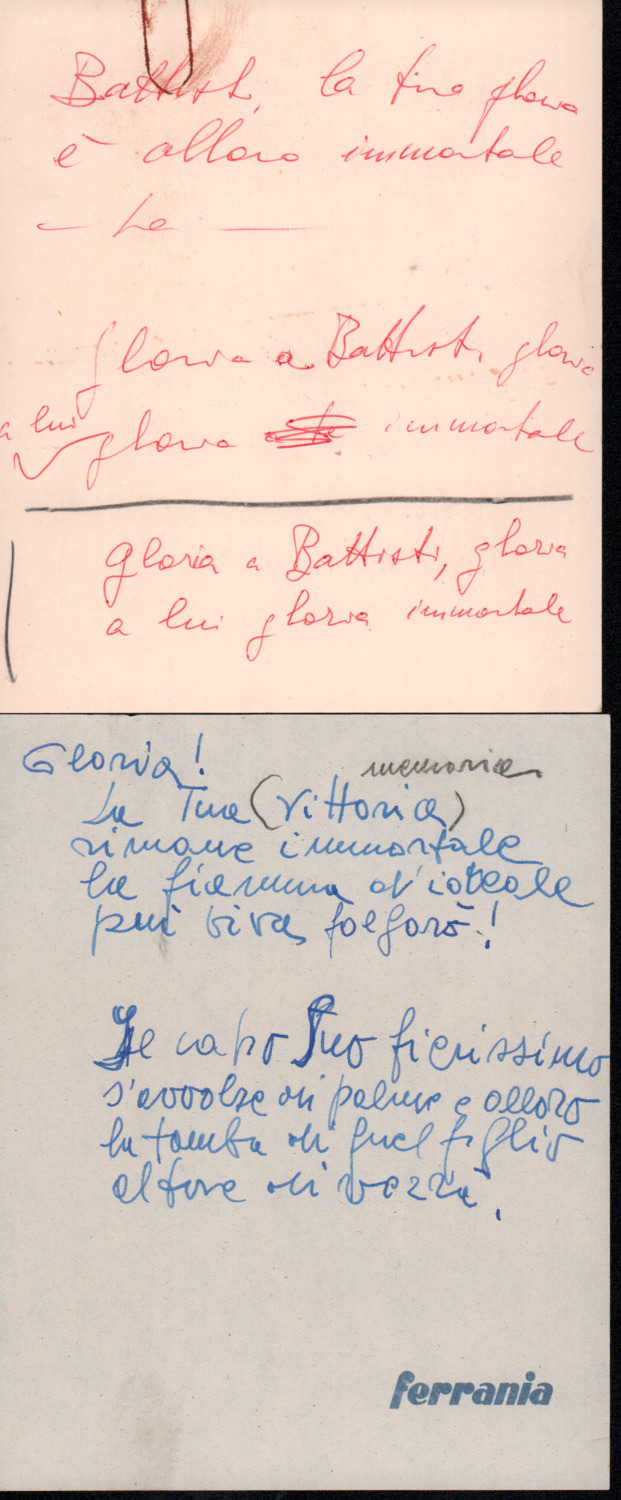 Battisti, la tua gloria
è alloro immortale
— La —
gloria a Battisti gloria
a lui gloria immortale
Gloria a Battisti, gloria
a lui gloria immortale
Gloria! memoria
La Tua (Vittoria)
rimane immortale
la fiamma d'ideale
più viva folgorò!
Il capo Tuo fierissimo
s'avvolse di palme e alloro
la tomba di quel figlio
altare di